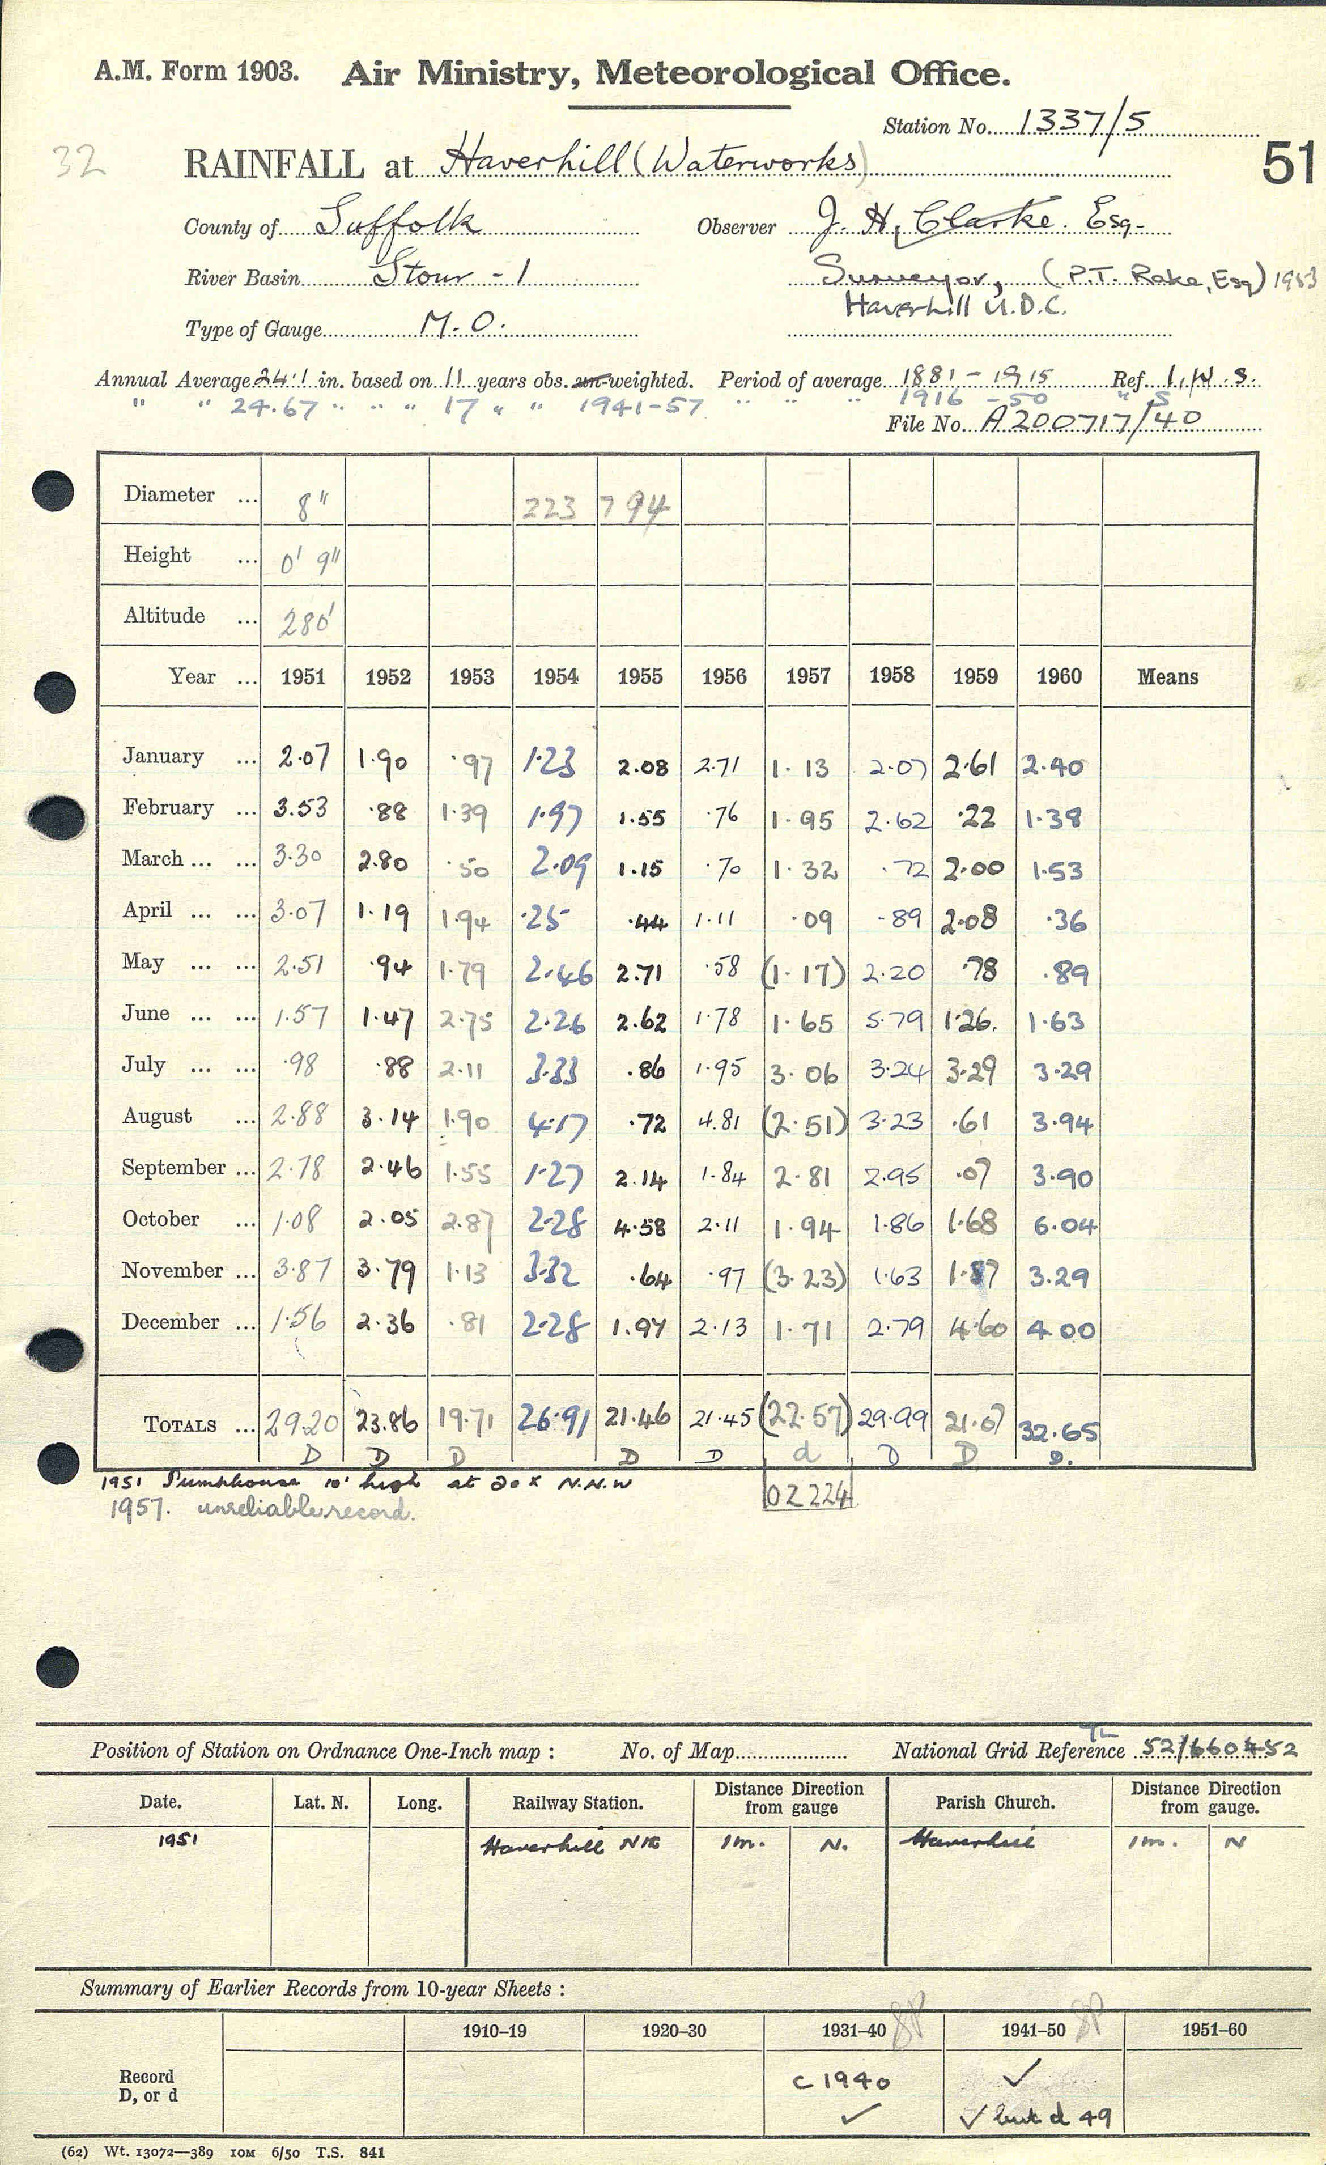 A.M. Form 1903. Air Ministry, Meteorological Office.
Station No. 1337/5
32 RAINFALL at Haverhill (Waterworks) 51
County of Suffolk Observer J. H. Clarke. Esq.
River Basin Stour - 1 Surveyor, (P.T. Rake, Esq) 1953
Haverhill U.D.C.
Type of Gauge M.O.
Annual Average 24.1 in. based on 11 years obs. un-weighted. Period of average 1881 - 1915 Ref. I.W.S.
" " 24.67 " " " 17 " " 1941-57 " " " 1916 - 50 " S
File No. A200717/40
Diameter ... 8" 223 794
Height ... 0' 9"
Altitude ... 280'
Year ... 1951 1952 1953 1954 1955 1956 1957 1958 1959 1960 Means
January ... 2.07 1.90 .97 1.23 2.08 2.71 1.13 2.07 2.61 2.40
February ... 3.53 .88 1.39 1.97 1.55 .76 1.95 2.62 .22 1.38
March ... ... 3.30 2.80 .50 2.09 1.15 .70 1.32 .72 2.00 1.53
April ... ... 3.07 1.19 1.94 .25 .44 1.11 .09 .89 2.08 .36
May ... ... 2.51 .94 1.79 2.46 2.71 .58 (1.17) 2.20 .78 .89
June ... ... 1.57 1.47 2.75 2.26 2.62 1.78 1.65 5.79 1.26. 1.63
July ... ... .98 .88 2.11 3.33 .86 1.95 3.06 3.24 3.29 3.29
August ... 2.88 3.14 1.90 4.17 .72 4.81 (2.51) 3.23 .61 3.94
September ... 2.78 2.46 1.55 1.27 2.14 1.84 2.81 2.95 .07 3.90
October ... 1.08 2.05 2.87 2.28 4.58 2.11 1.94 1.86 1.68 6.04
November ... 3.87 3.79 1.13 3.32 .64 .97 (3.23) 1.63 1.87 3.29
December ... 1.56 2.36 .81 2.28 1.97 2.13 1.71 2.79 4.60 4.00
TOTALS ... 29.20 23.86 19.71 26.91 21.46 21.45 (22.57) 29.99 21.07 32.65
D D D D D d D D D.
1951 Pumphouse 10' high at 20 x N.N.W
02224
1957. unreliable record.
Position of Station on Ordnance One-Inch map : No. of Map National Grid Reference TL 52/660452
Date. Lat. N. Long. Railway Station. Distance from gauge Direction Parish Church. Distance from gauge. Direction
1951 Haverhill 1m. N. Haverhill 1m. N
Summary of Earlier Records from 10-year Sheets :
1910-19 1920-30 1931-40 1941-50 1951-60
Record
D, or d
c 1940 ✓
✓ ✓ but d 49
(62) Wt. 13072—389 10M 6/50 T.S. 841